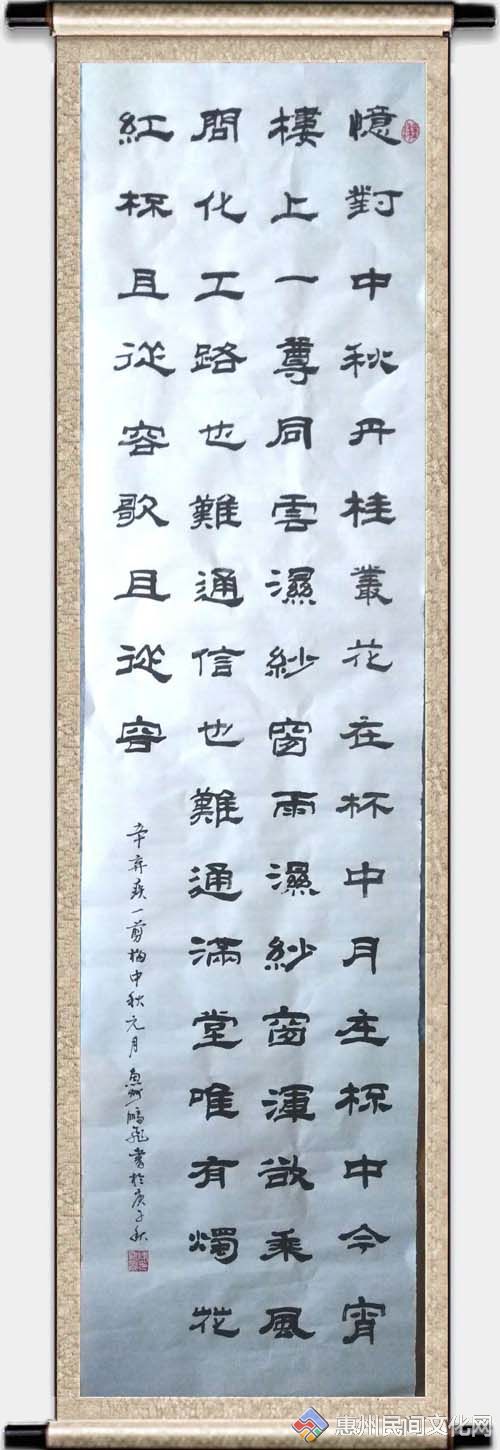 憶對中秋丹桂叢花在杯中月在杯中今宵
樓上一尊同雲濕紗窗雨濕紗窗渾欲乘風
問化工路也難通信也難通滿堂唯有燭花
紅杯且從容歌且從容
辛棄疾一剪梅中秋元月 惠州鵬飛書於庚子秋
惠州民间文化网